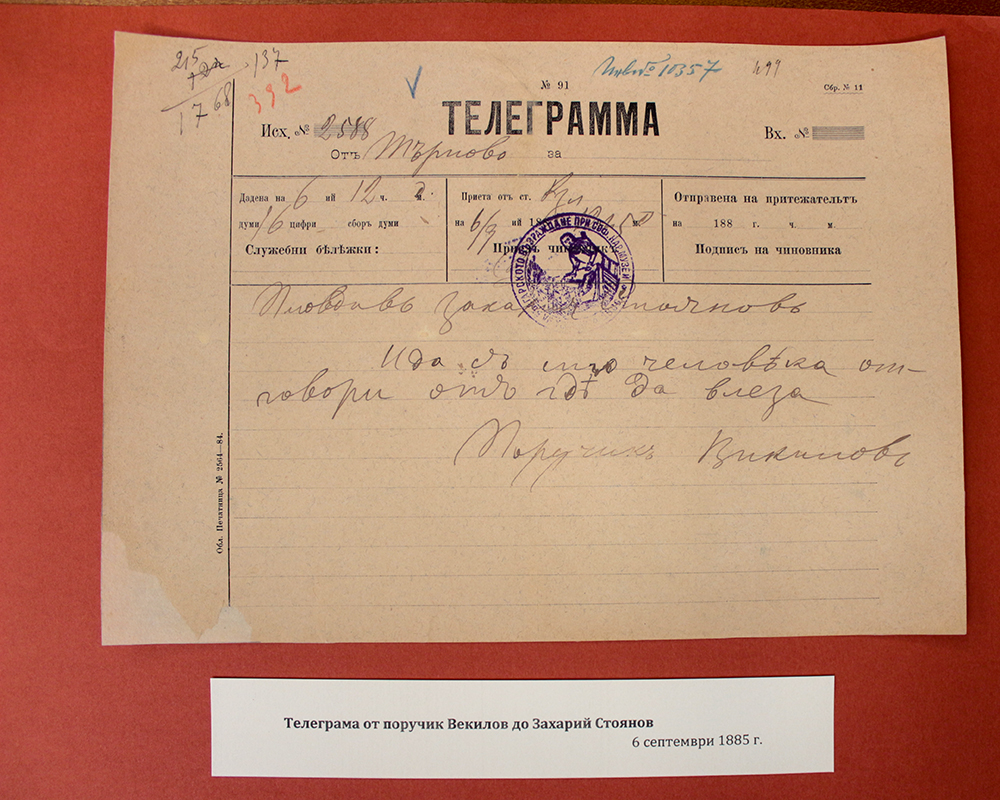 215 137
392
1768
Инв № 10357 499
№ 91
Сбр. № 11
ТЕЛЕГРАММА
Исх. № 2588
Вх. №
Отъ Търново за
Дадена на 6 ий 12 ч. м.
думи 16 цифри сборъ думи
Служебни бѣлѣжки:
Приета отъ ст.
на 6/9 ий 188 м.
Приелъ чиновникъ
Отправена на притежательтъ
на 188 г. ч. м.
Подпись на чиновника
Пловдивъ Заха Стояновъ
Ида съ человѣка от-
говори отъ гдѣ да влеза
Поручикъ Викиловъ
Обл. Печатница № 2564—84.
Телеграма от поручик Векилов до Захарий Стоянов
6 септември 1885 г.